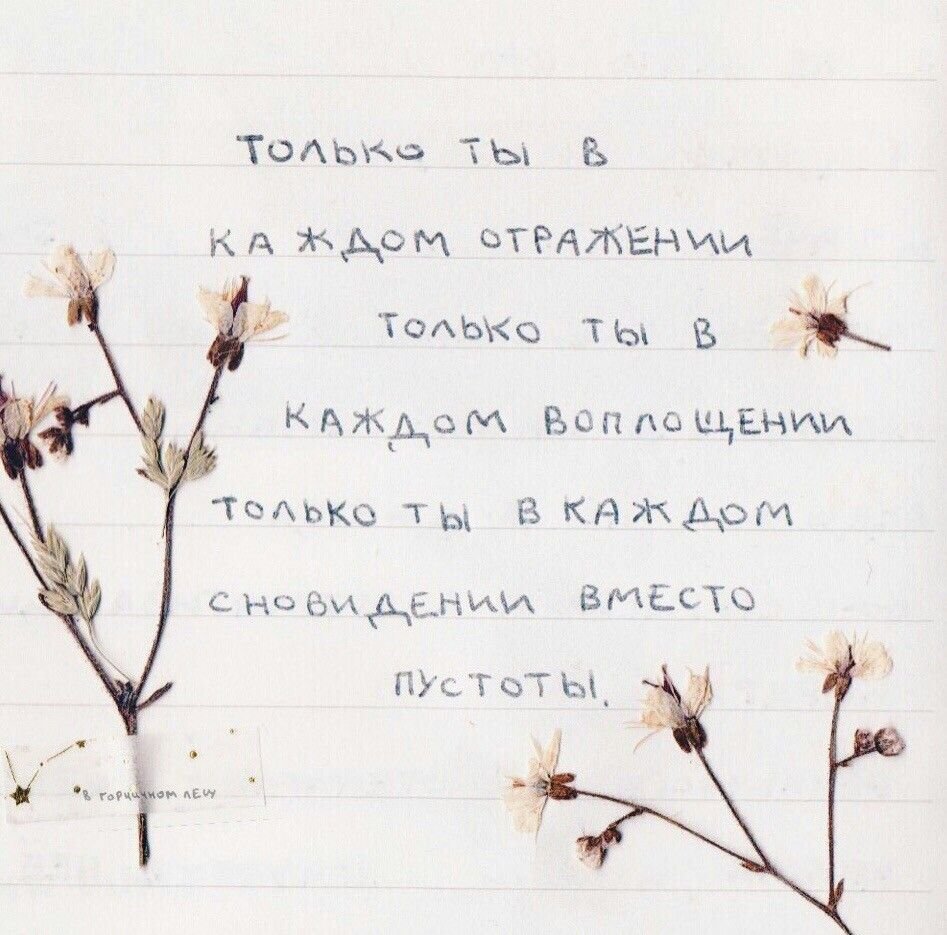 ТОЛЬКО ТЫ В
КАЖДОМ ОТРАЖЕНИИ
ТОЛЬКО ТЫ В
КАЖДОМ ВОПЛОЩЕНИИ
ТОЛЬКО ТЫ В КАЖДОМ
СНОВИДЕНИИ ВМЕСТО
ПУСТОТЫ.
В ГОРЧИЧНОМ